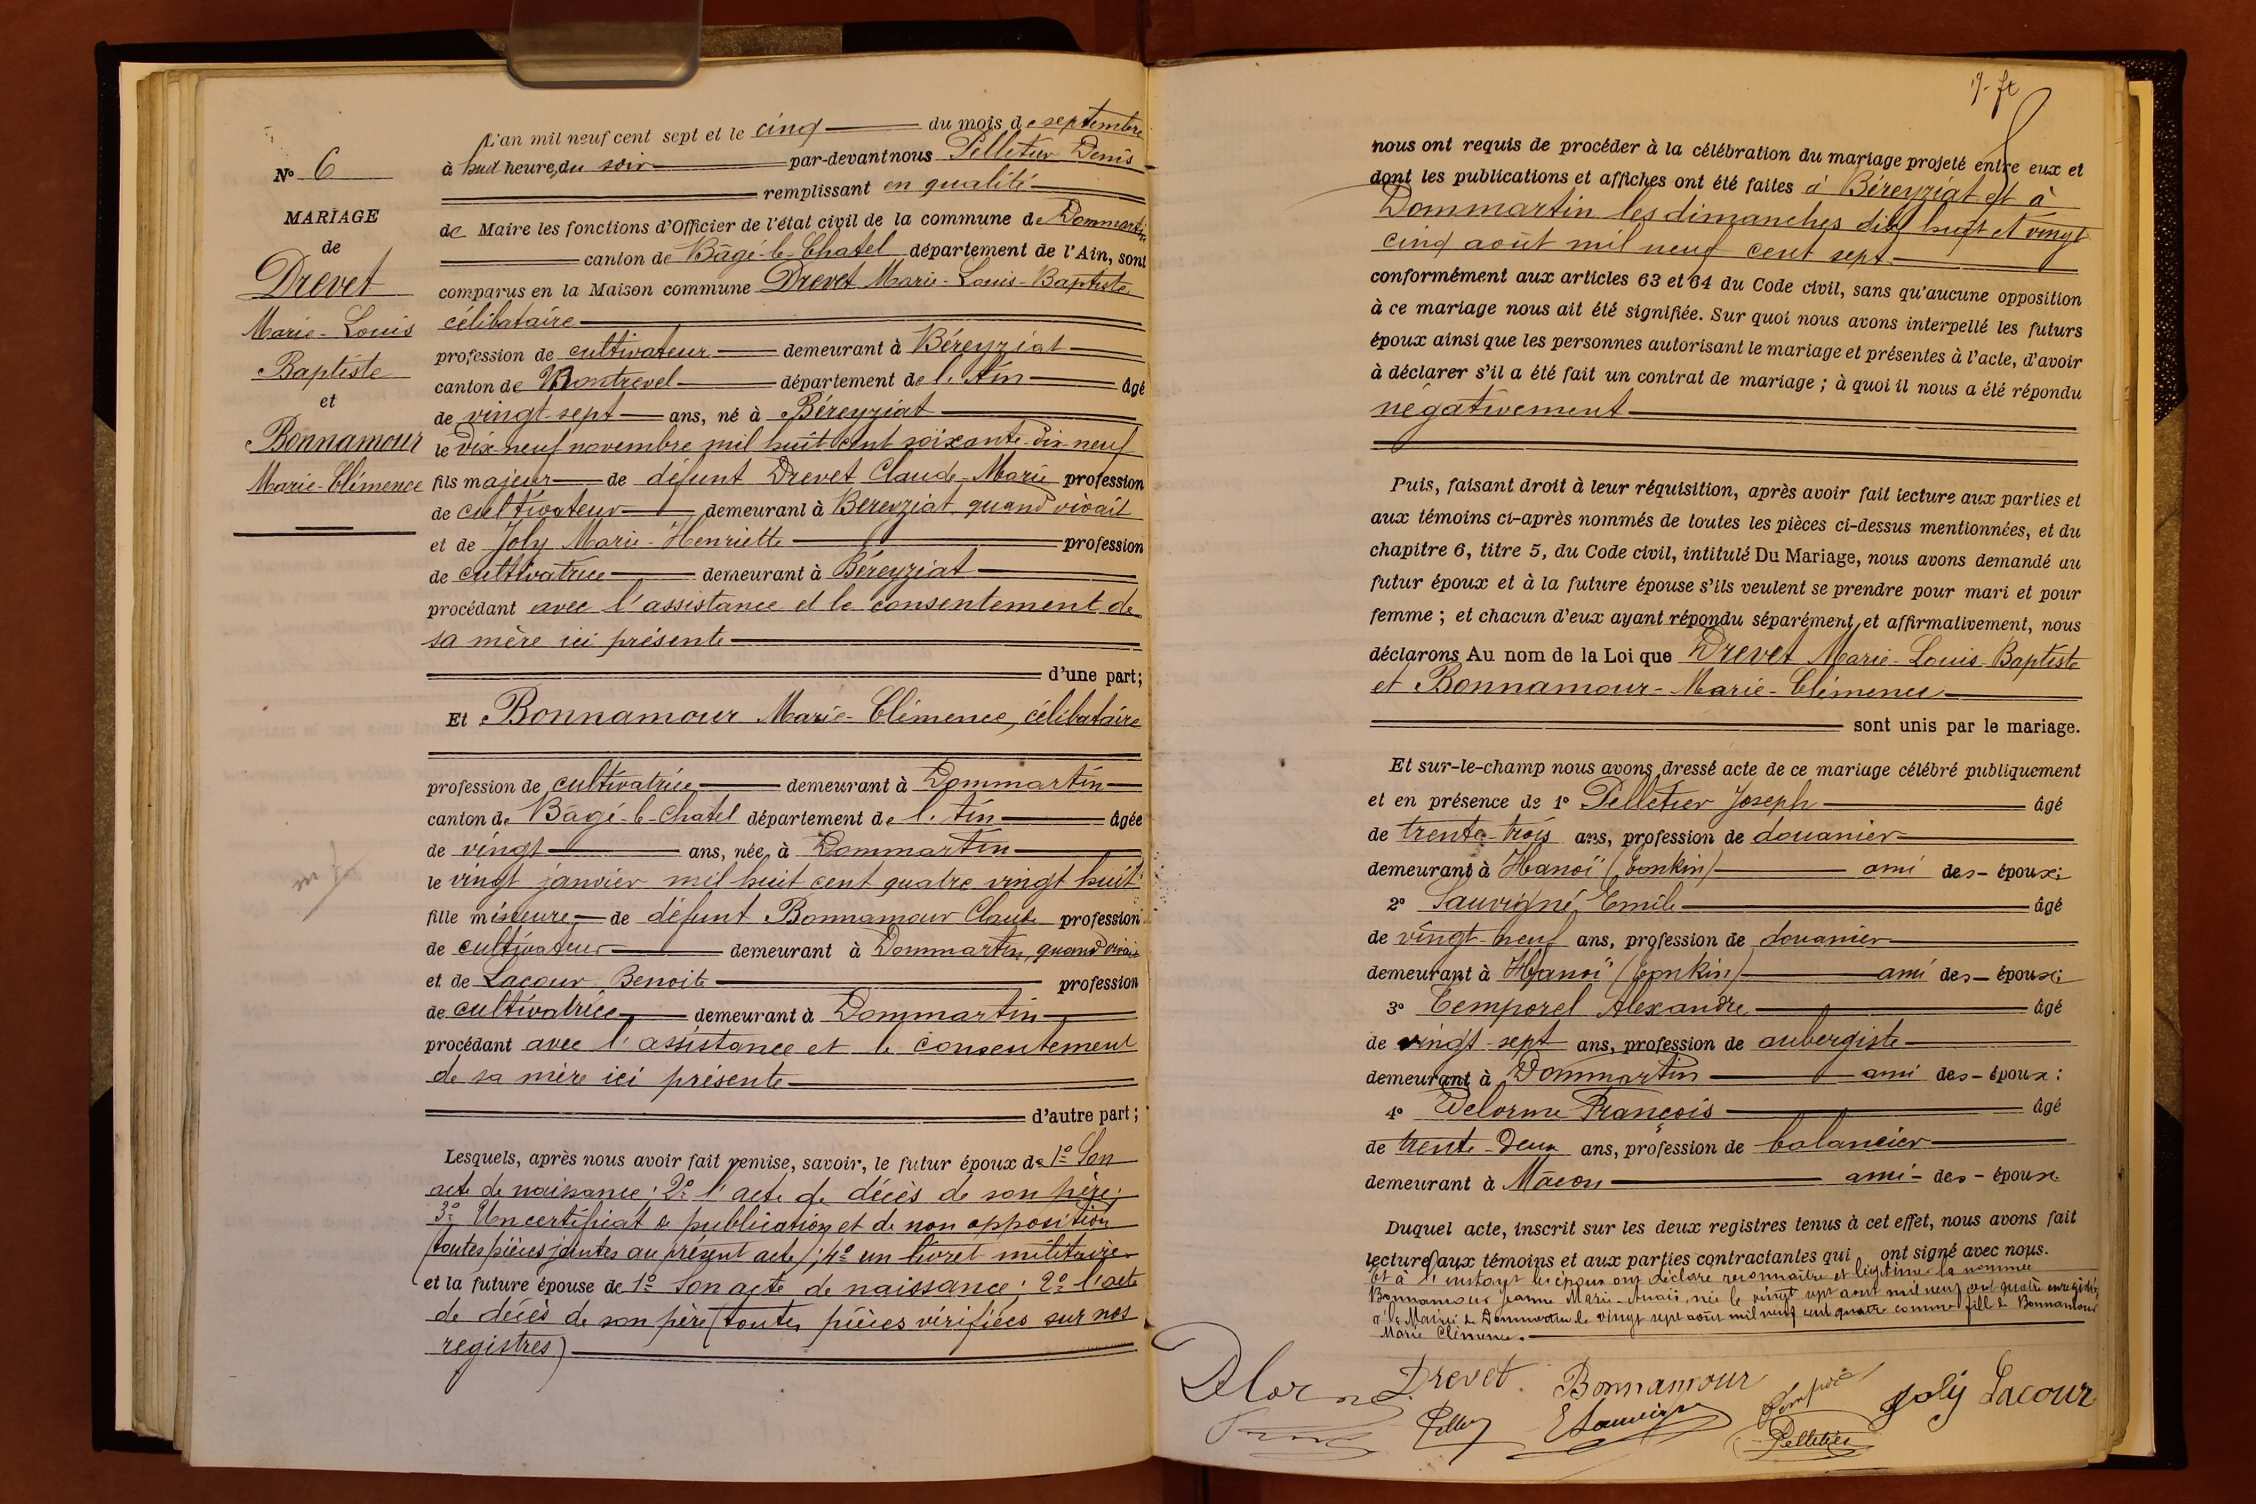 L'an mil neuf cent sept et le cinq du mois de septembre
à huit heures du soir par-devant nous Pelletier Denis
remplissant en qualité
de Maire les fonctions d'Officier de l'état civil de la commune de Dommartin
canton de Bâgé-le-Chatel département de l'Ain, sont
comparus en la Maison commune Drevet Marie-Louis-Baptiste
célibataire
profession de cultivateur demeurant à Béreyziat
canton de Montrevel département de l'Ain âgé
de vingt-sept ans, né à Béreyziat
le dix-neuf novembre mil huit cent soixante-dix-neuf
fils majeur de défunt Drevet Claude-Marie profession
de cultivateur demeurant à Béreyziat, quand vivait
et de Joly Marie-Henriette profession
de cultivatrice demeurant à Béreyziat
procédant avec l'assistance et le consentement de
sa mère ici présente
d'une part;
Et Bonnamour Marie-Clémence, célibataire
profession de cultivatrice demeurant à Dommartin
canton de Bâgé-le-Chatel département de l'Ain âgée
de vingt ans, née à Dommartin
le vingt janvier mil huit cent quatre vingt huit
fille mineure de défunt Bonnamour Claude profession
de cultivateur demeurant à Dommartin, quand vivait
et de Lacour Benoite profession
de cultivatrice demeurant à Dommartin
procédant avec l'assistance et le consentement
de sa mère ici présente
d'autre part;
Lesquels, après nous avoir fait remise, savoir, le futur époux de 1º Son
acte de naissance; 2º l'acte de décès de son père;
3º Un certificat de publication et de non opposition
(toutes pièces jointes au présent acte); 4º un livret militaire
et la future épouse de 1º Son acte de naissance; 2º l'acte
de décès de son père (toutes pièces vérifiées sur nos
registres)
Nº 6
MARIAGE
de
Drevet
Marie-Louis
Baptiste
et
Bonnamour
Marie-Clémence
nous ont requis de procéder à la célébration du mariage projeté entre eux et
dont les publications et affiches ont été faites à Béreyziat et à
Dommartin les dimanches dix huit et vingt
cinq août mil neuf cent sept
conformément aux articles 63 et 64 du Code civil, sans qu'aucune opposition
à ce mariage nous ait été signifiée. Sur quoi nous avons interpellé les futurs
époux ainsi que les personnes autorisant le mariage et présentes à l'acte, d'avoir
à déclarer s'il a été fait un contrat de mariage; à quoi il nous a été répondu
négativement
Puis, faisant droit à leur réquisition, après avoir fait lecture aux parties et
aux témoins ci-après nommés de toutes les pièces ci-dessus mentionnées, et du
chapitre 6, titre 5, du Code civil, intitulé Du Mariage, nous avons demandé au
futur époux et à la future épouse s'ils veulent se prendre pour mari et pour
femme; et chacun d'eux ayant répondu séparément et affirmativement, nous
déclarons Au nom de la Loi que Drevet Marie-Louis-Baptiste
et Bonnamour-Marie-Clémence
sont unis par le mariage.
Et sur-le-champ nous avons dressé acte de ce mariage célébré publiquement
et en présence de 1º Pelletier Joseph âgé
de trente-trois ans, profession de douanier
demeurant à Hanoï (Tonkin) ami des époux;
2º Sauvigné Emile âgé
de vingt-neuf ans, profession de douanier
demeurant à Hanoï (Tonkin) ami des époux;
3º Temporel Alexandre âgé
de vingt-sept ans, profession de aubergiste
demeurant à Dommartin ami des époux:
4º Delorme François âgé
de trente-deux ans, profession de balancier
demeurant à Mâcon ami des époux
Duquel acte, inscrit sur les deux registres tenus à cet effet, nous avons fait
lecture aux témoins et aux parties contractantes qui ont signé avec nous.
Et à l'instant les époux ont déclaré reconnaître et légitimer la nommée
Bonnamour Jeanne Marie-Anaïs, née le vingt sept août mil neuf cent quatre enregistrée
à la Mairie de Dommartin le vingt sept août mil neuf cent quatre comme fille de Bonnamour
Marie Clémence.
Delorme Drevet Bonnamour Temporel Joly Lacour
Sauvigné Pelletier